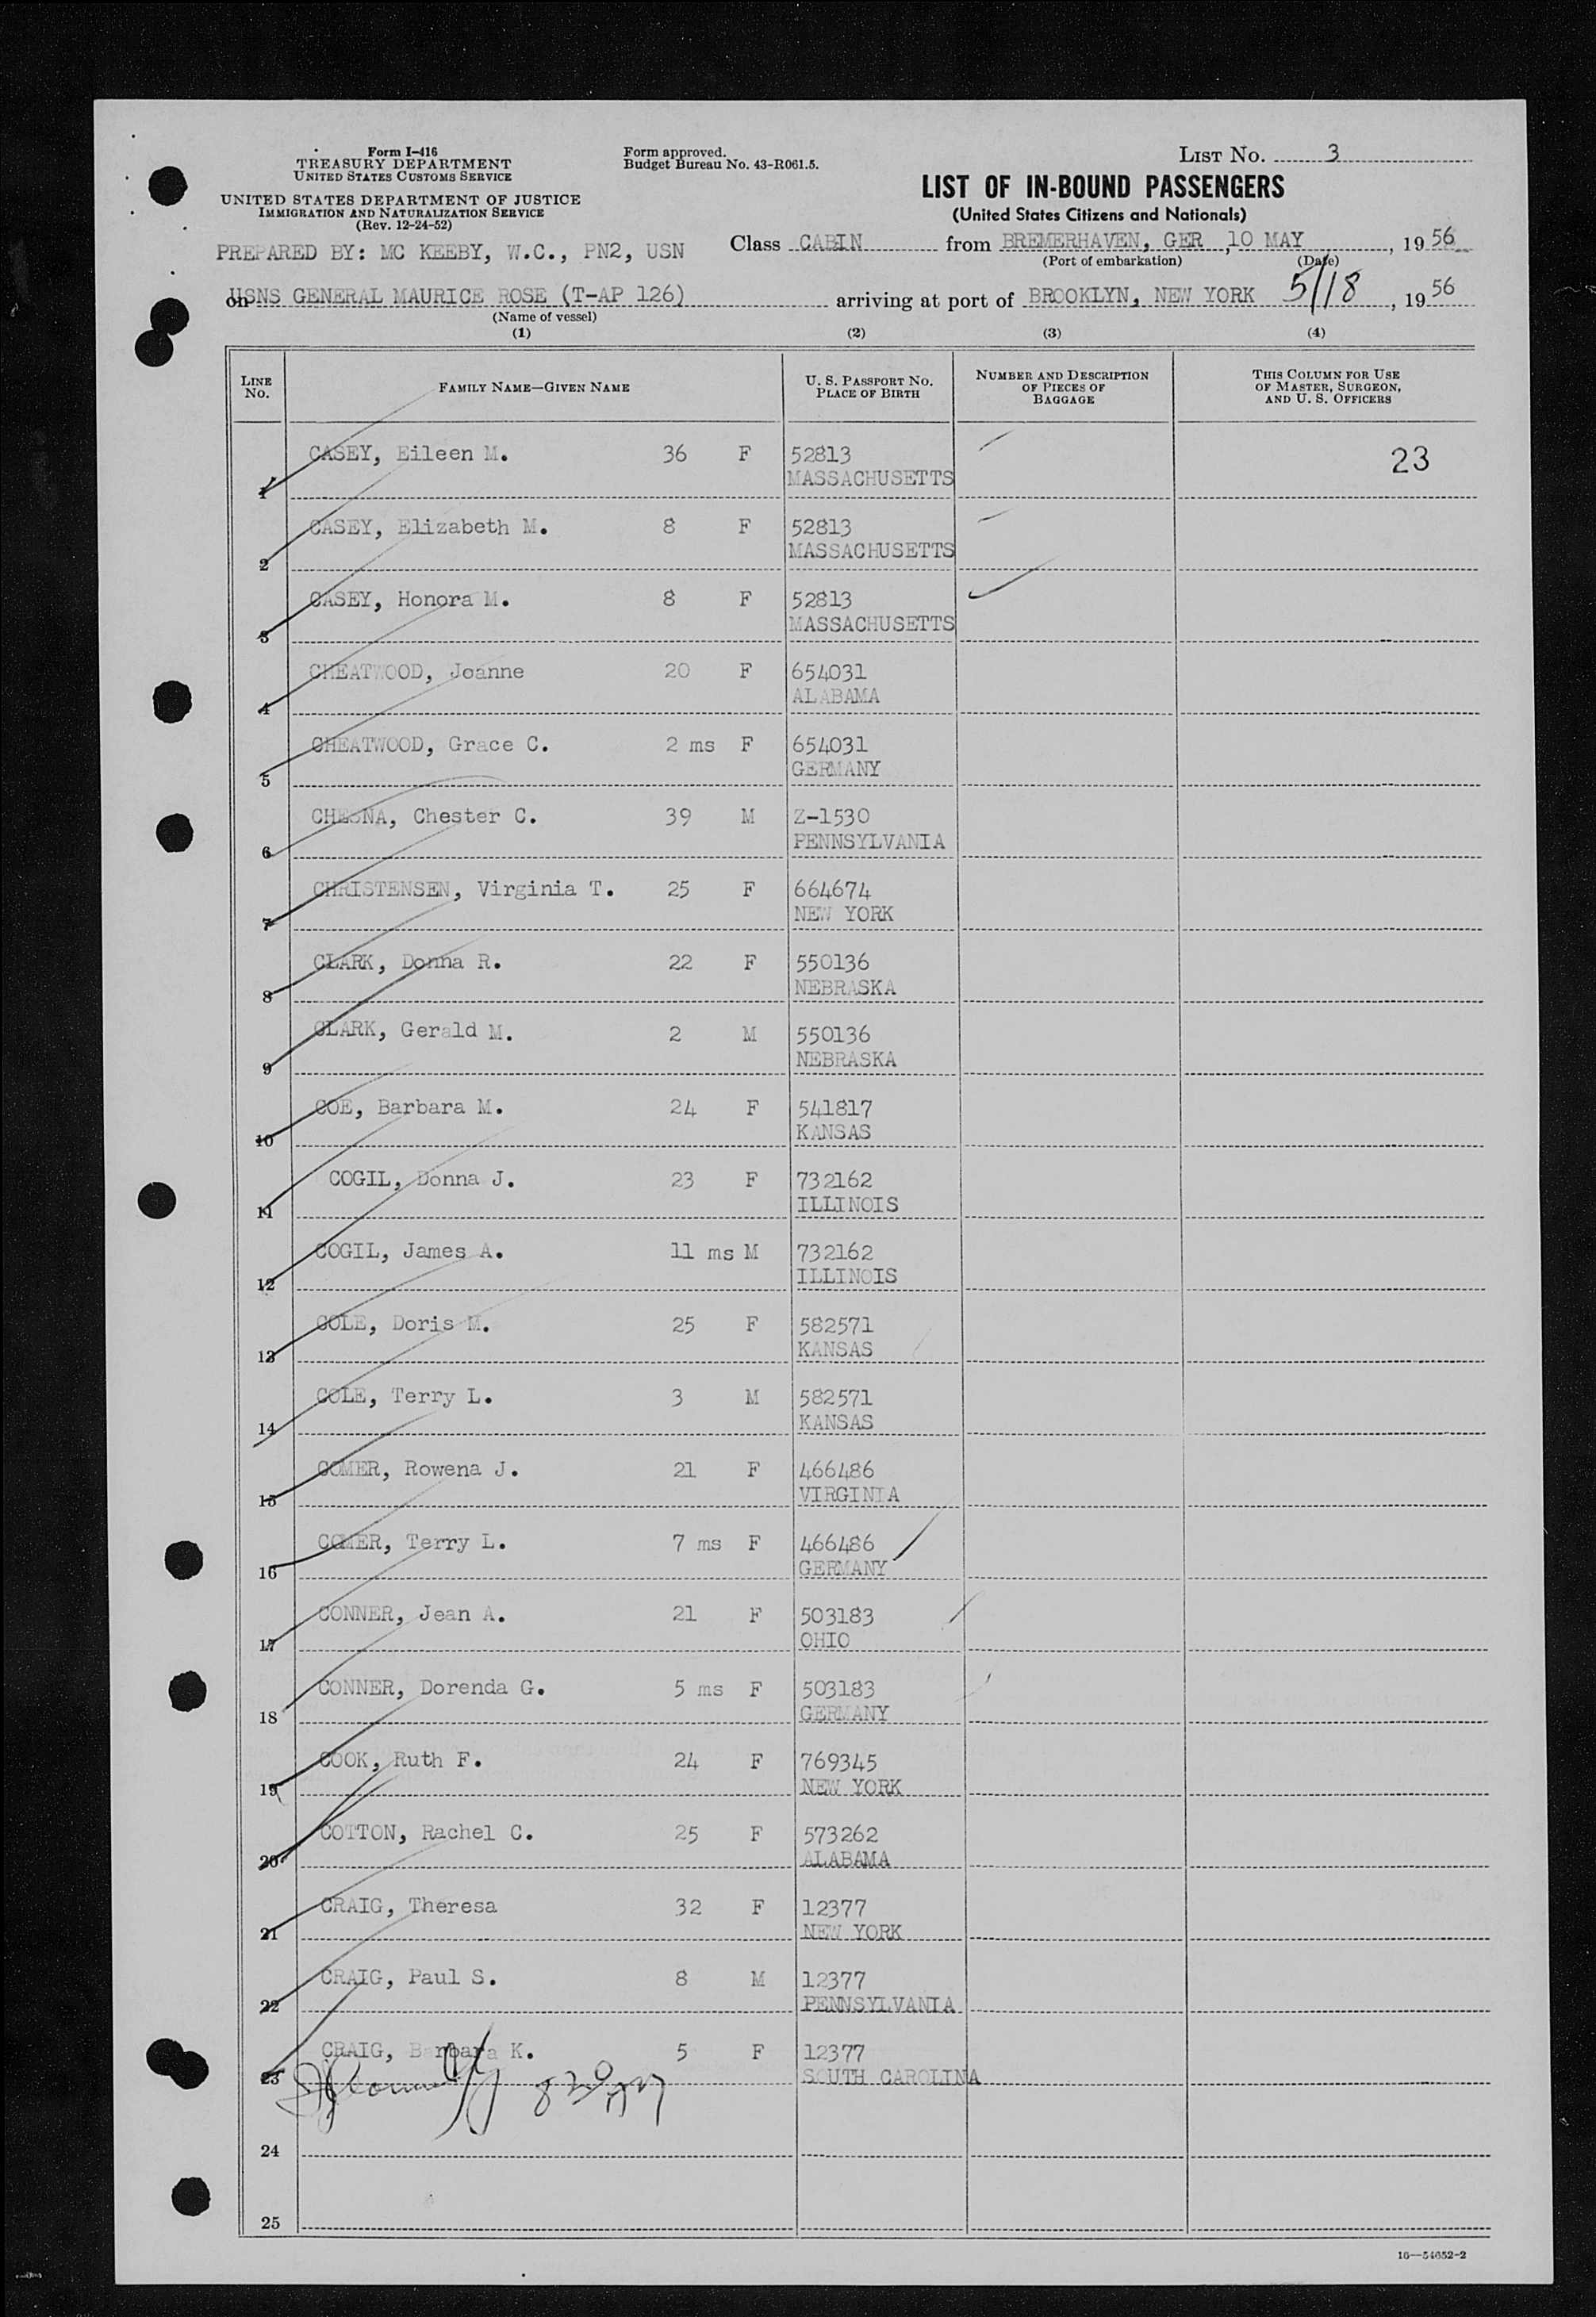 Form I-416
TREASURY DEPARTMENT
UNITED STATES CUSTOMS SERVICE
UNITED STATES DEPARTMENT OF JUSTICE
IMMIGRATION AND NATURALIZATION SERVICE
(Rev. 12-24-52)
Form approved.
Budget Bureau No. 43-R061.5.
LIST NO. 3
LIST OF IN-BOUND PASSENGERS
(United States Citizens and Nationals)
PREPARED BY: MC KEEBY, W.C., PN2, USN
Class CABIN from BREMERHAVEN, GER, 10 MAY, 1956
(Port of embarkation) (Date)
on USNS GENERAL MAURICE ROSE (T-AP 126) arriving at port of BROOKLYN, NEW YORK 5/18, 1956
(Name of vessel)
(1) (2) (3) (4)
LINE NO. FAMILY NAME—GIVEN NAME U. S. PASSPORT NO. PLACE OF BIRTH NUMBER AND DESCRIPTION OF PIECES OF BAGGAGE THIS COLUMN FOR USE OF MASTER, SURGEON, AND U. S. OFFICERS
CASEY, Eileen M. 36 F 52813 23
1 MASSACHUSETTS
CASEY, Elizabeth M. 8 F 52813
2 MASSACHUSETTS
CASEY, Honora M. 8 F 52813
3 MASSACHUSETTS
CHEATWOOD, Joanne 20 F 654031
4 ALABAMA
CHEATWOOD, Grace C. 2 ms F 654031
5 GERMANY
CHESNA, Chester C. 39 M Z-1530
6 PENNSYLVANIA
CHRISTENSEN, Virginia T. 25 F 664674
7 NEW YORK
CLARK, Donna R. 22 F 550136
8 NEBRASKA
CLARK, Gerald M. 2 M 550136
9 NEBRASKA
COE, Barbara M. 24 F 541817
10 KANSAS
COGIL, Donna J. 23 F 732162
11 ILLINOIS
COGIL, James A. 11 ms M 732162
12 ILLINOIS
COLE, Doris M. 25 F 582571
13 KANSAS
COLE, Terry L. 3 M 582571
14 KANSAS
COMER, Rowena J. 21 F 466486
15 VIRGINIA
COMER, Terry L. 7 ms F 466486
16 GERMANY
CONNER, Jean A. 21 F 503183
17 OHIO
CONNER, Dorenda G. 5 ms F 503183
18 GERMANY
COOK, Ruth F. 24 F 769345
19 NEW YORK
COTTON, Rachel C. 25 F 573262
20 ALABAMA
CRAIG, Theresa 32 F 12377
21 NEW YORK
CRAIG, Paul S. 8 M 12377
22 PENNSYLVANIA
CRAIG, Barbara K. 5 F 12377
23 SOUTH CAROLINA
24
25
16—54652-2